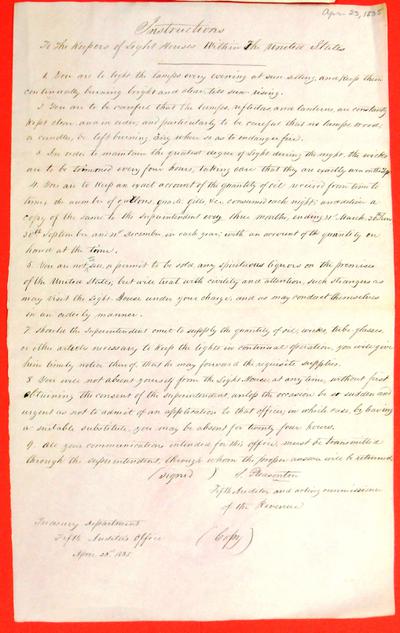 Apr 23, 1835
Instructions
To The Keepers of Light Houses Within The United States
1. You are to light the lamps every evening at sun setting, and keep them
continually burning bright and clear, till sun rising.
2 You are to be careful that the lamps, reflectors, and lanterns, are constantly
kept clean, and in order; and particularly to be careful that no lamps, wood,
or candles, be left burning any where so as to endanger fire.
3 In order to maintain the greatest degree of light during the night, the wicks
are to be trimmed every four hours, taking care that they are exactly even on the top
4. You are to keep an exact account of the quantity of oil received from time to
time; the number of gallons, quarts, gills, &c. consumed each night; and deliver a
copy of the same to the Superintendent every three months, ending 31 March, 30th June
30th September and 31st December, in each year; with an account of the quantity on
hand at the time.
5. You are not to sell, or permit to be sold, any spirituous liquors on the premises
of the United States; but will treat with civility and attention, such strangers as
may visit the Light House under your charge, and as may conduct themselves
in an orderly manner.
7 Should the Superintendent omit to supply the quantity of oil, wicks, tube glasses,
or other articles necessary to keep the lights in continual operation, you will give
him timely notice thereof, that he may forward the requisite supplies.
8 You will not absent yourself from the Light House at any time, without first
obtaining the consent of the Superintendent, unless the occasion be so sudden and
urgent as not to admit of an application to that officer; in which case, by leaving
a suitable substitute, you may be absent for twenty four hours.
9. All your communications intended for this office, must be transmitted
through the superintendent, through whom the proper answer will be returned
(signed) S. Pleasonton
Fifth Auditor and acting commissioner
of the Revenue
Treasury Department
Fifth Auditor's Office
April 23d 1835
(Copy)